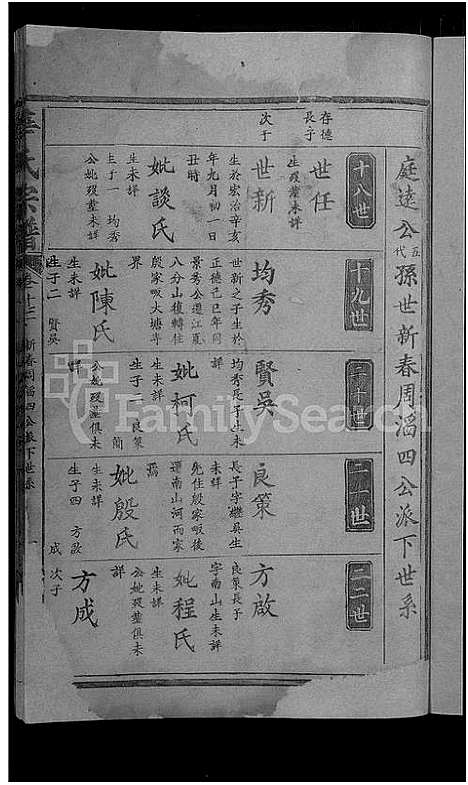 庭遠公五代孫世新春周滔四公派下世系
十八世
存德長子
世任
生歿葬未詳
次子
世新
生於宏治辛亥
年九月初一日
丑時
妣談氏
生未詳
生子一 均秀
公妣歿葬未詳
十九世
均秀
世新之子生於
正德己巳年同
景秀公遷江夏
八分山復轉住
殷家畈大塘等
界
妣陳氏
生未詳
生子二 賢吳
二十世
賢吳
均秀長子生未
詳
妣柯氏
生未詳
生子二 良策
簡
公妣歿葬俱未
詳
二一世
良策
長子字繼吳生
未詳
先住殷家畈後
遷南山河而家
焉
妣殷氏
生未詳
生子四 方啟
成
二二世
方啟
良策長子
字南山生未詳
妣程氏
生未詳
公妣歿葬俱未
詳
次子
方成
氏宗譜
新春周滔四公派下世系
FamilySearch